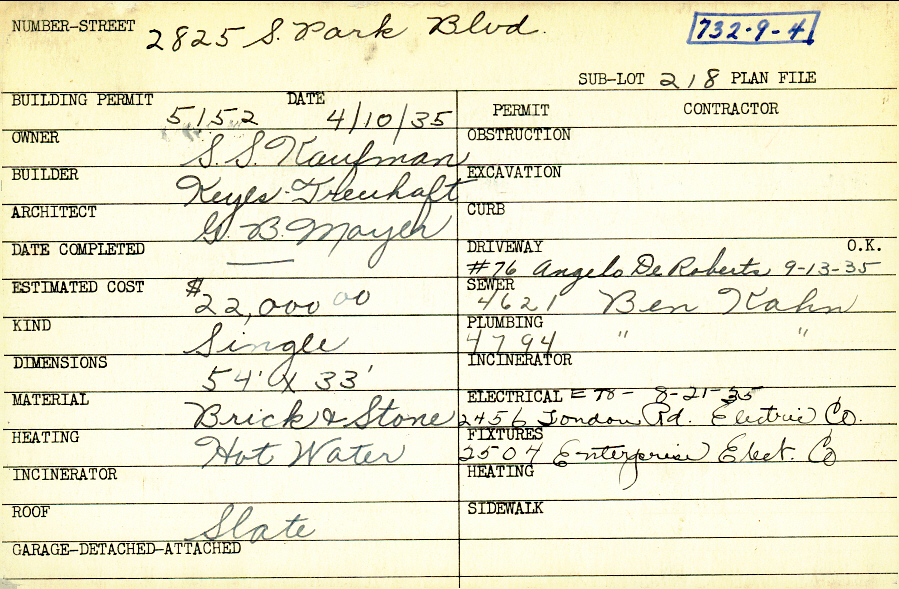 NUMBER-STREET 2825 S. Park Blvd. 732-9-4
SUB-LOT 218 PLAN FILE
BUILDING PERMIT 5152 DATE 4/10/35
PERMIT CONTRACTOR
OWNER S. S. Kaufman
OBSTRUCTION
BUILDER Keyes-Treuhaft
EXCAVATION
ARCHITECT G. B. Mayer
CURB
DATE COMPLETED —
DRIVEWAY O.K.
#76 Angelo De Roberts 9-13-35
ESTIMATED COST $22,000 00
SEWER
4621 Ben Kahn
KIND Single
PLUMBING
4794 " "
DIMENSIONS 54' X 33'
INCINERATOR
MATERIAL Brick & Stone
ELECTRICAL 8-21-35
2456 London Rd. Electric Co.
HEATING Hot Water
FIXTURES
2504 Enterprise Elect. Co
INCINERATOR
HEATING
ROOF Slate
SIDEWALK
GARAGE-DETACHED-ATTACHED